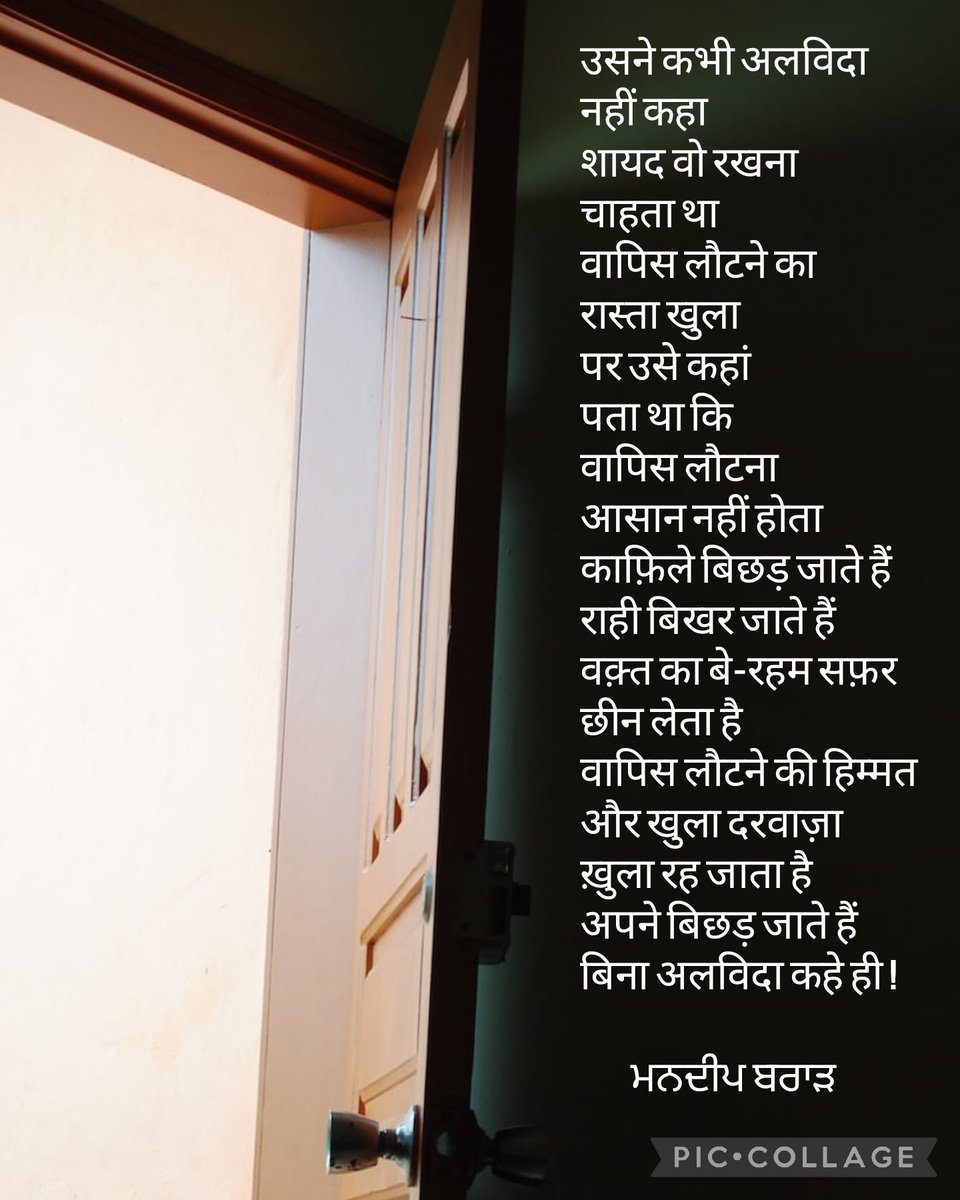 उसने कभी अलविदा
नहीं कहा
शायद वो रखना
चाहता था
वापिस लौटने का
रास्ता खुला
पर उसे कहां
पता था कि
वापिस लौटना
आसान नहीं होता
काफ़िले बिछड़ जाते हैं
राही बिखर जाते हैं
वक़्त का बे-रहम सफ़र
छीन लेता है
वापिस लौटने की हिम्मत
और खुला दरवाज़ा
ख़ुला रह जाता है
अपने बिछड़ जाते हैं
बिना अलविदा कहे ही!
ਮਨਦੀਪ ਬਰਾੜ
PIC•COLLAGE